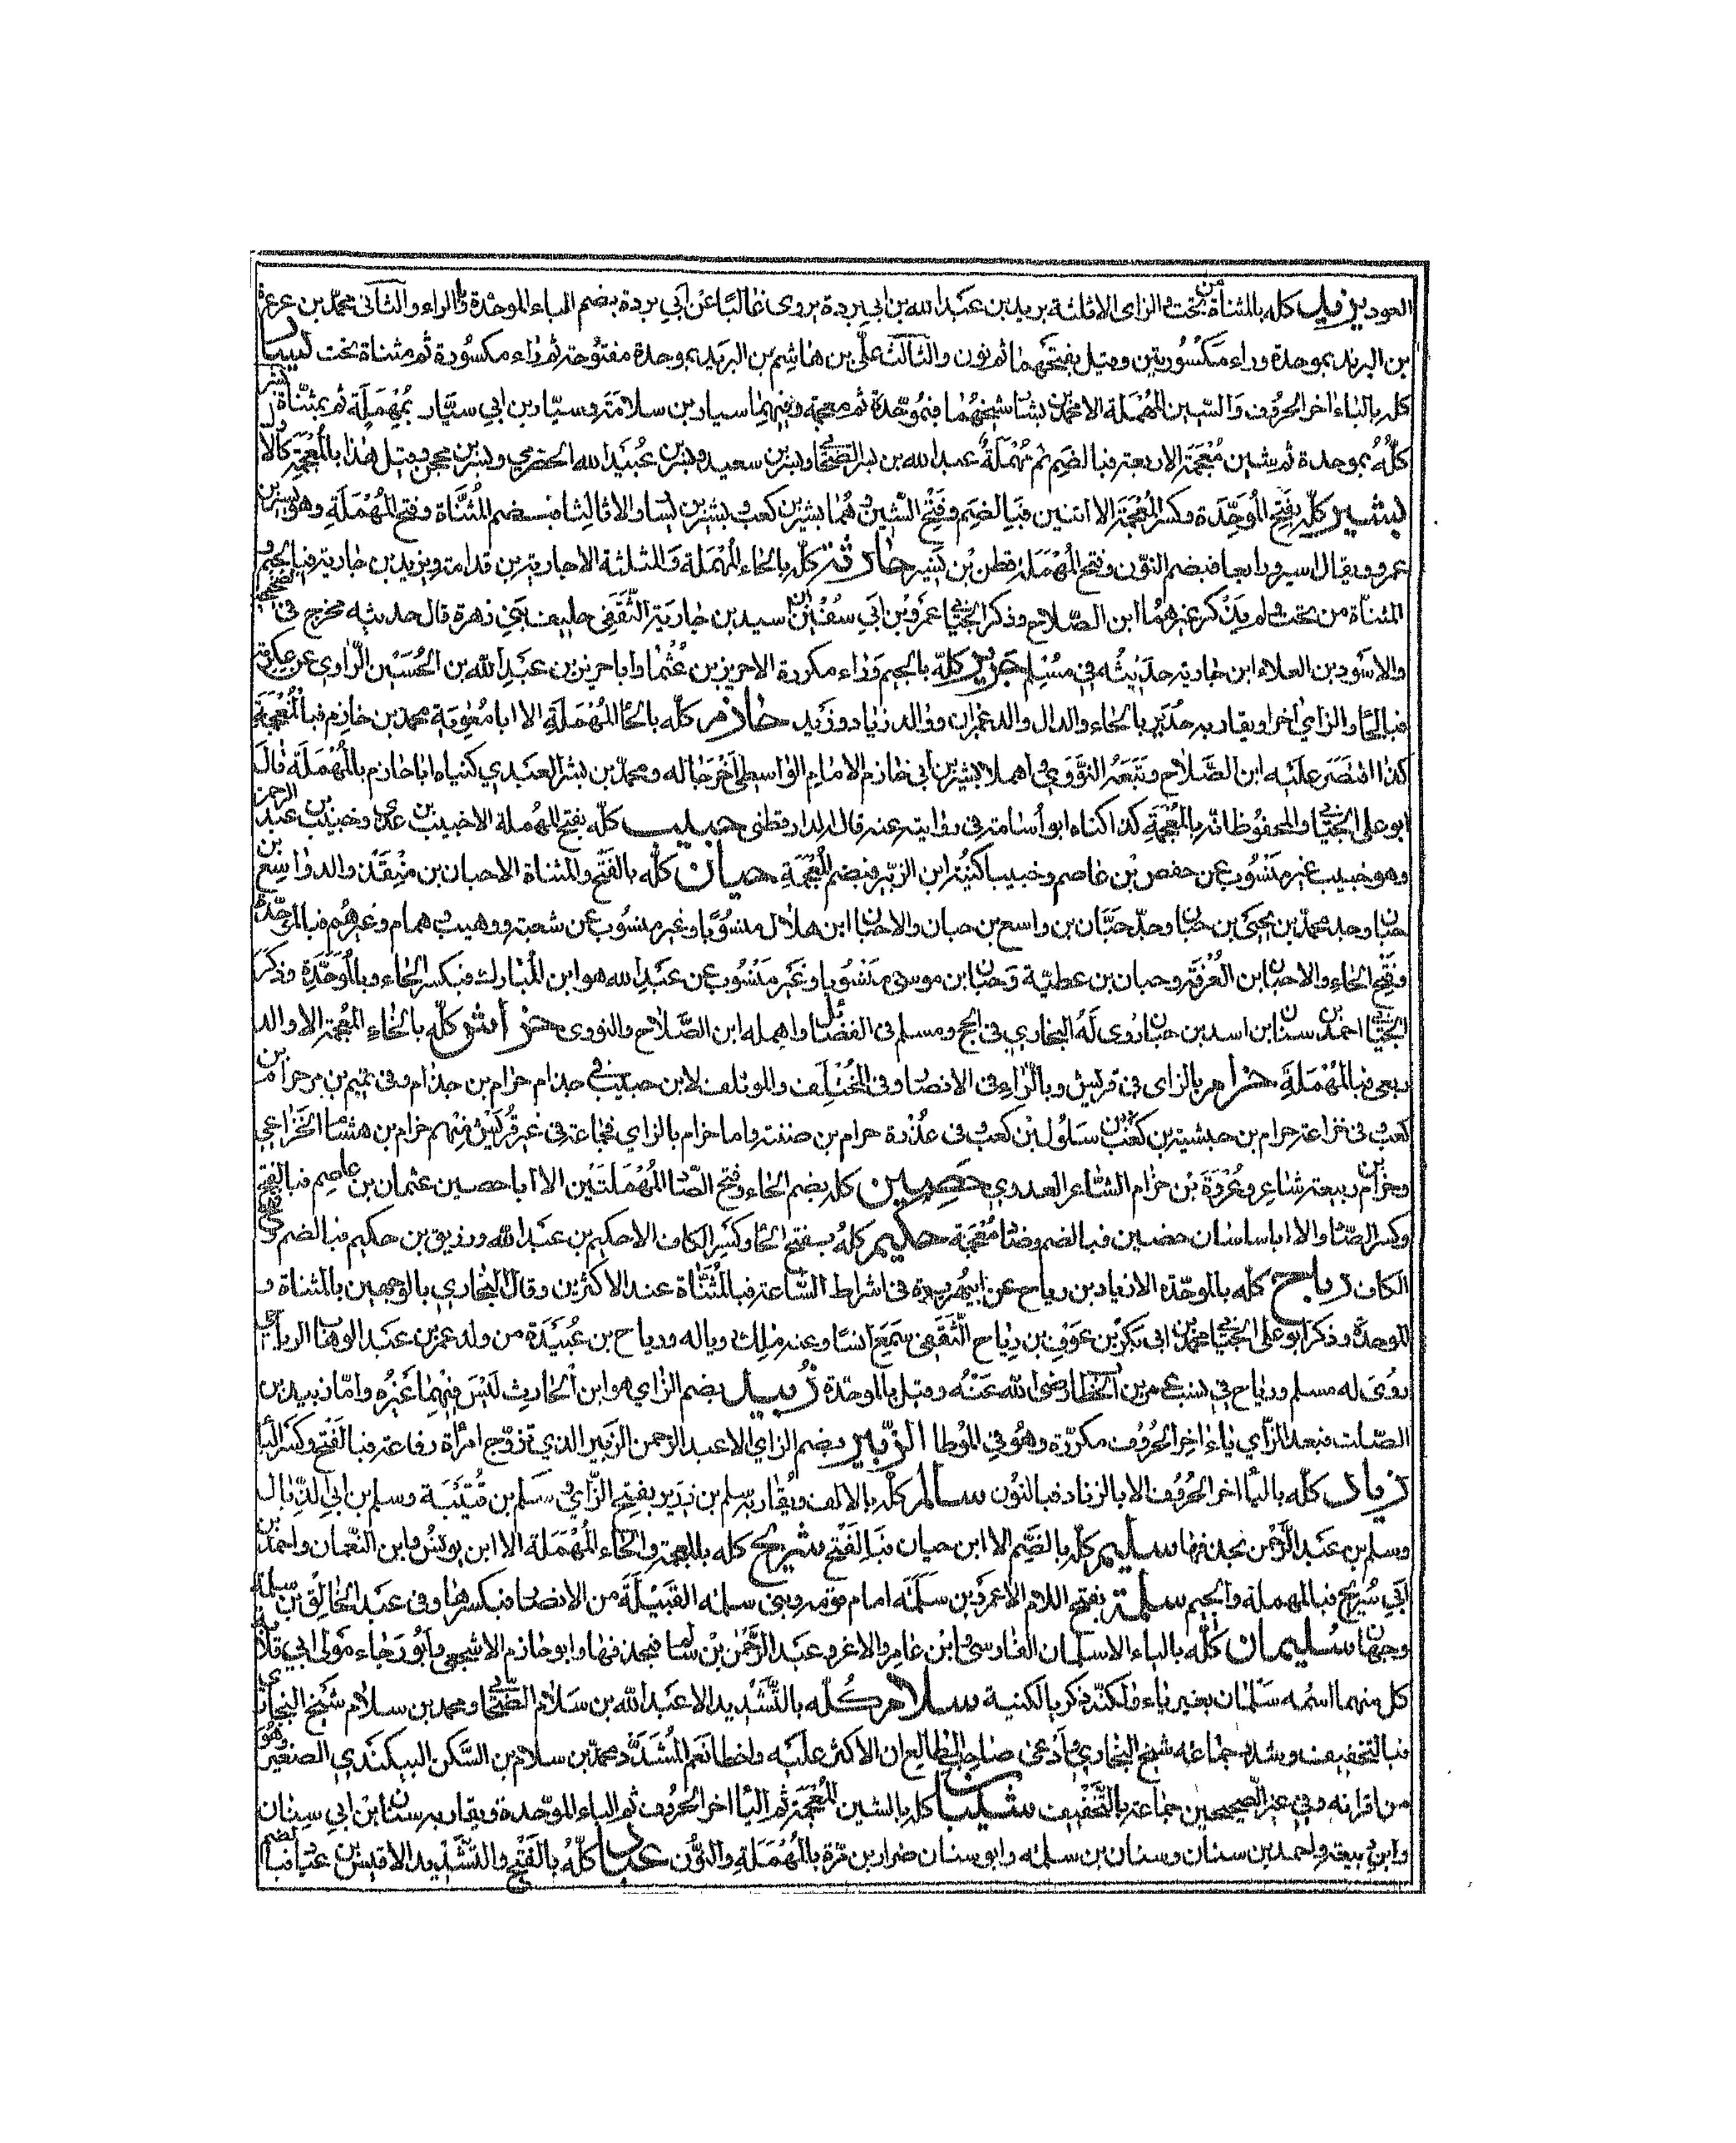 العود يزيد كله بالمثناة من تحت والزاى الا ثلثة بريد بن عبد الله بن ابي بردة يروى غالبا عن ابي بردة بضم الباء الموحدة والراء والثانى محمد بن عرعرة
بن البرند بموحدة وراء مكسورتين وقيل بفتحهما ثم نون والثالث على بن هاشم بن البريد بموحدة مفتوحة ثم راء مكسورة ثم مثناة تحت يسار
كله بالياء اخر الحروف والسين المهملة الا محمد بن بشار شيخهما فبموحدة ثم معجمة وفيهما سيار بن سلامة وسيار بن ابي سيار بمهملة ثم بمثناة بشر
كله بموحدة ثم شين معجمة الا اربعة فبالضم ثم مهملة عبد الله بن بسر الصحابي وبسر بن سعيد وبسر بن عبيد الله الحضرمي وبسر بن محجن وقيل هذا بالمعجمة كالاول
بشير كله بفتح الموحدة وكسر المعجمة الا اثنين فبالضم وفتح الشين وهما بشير بن كعب وبشير بن يسار والا ثالثا فبضم المثناة وفتح المهملة وهو يسير بن
عمرو ويقال اسير ورابعا فبضم النون وفتح المهملة قطن بن نسير حارثة كله بالحاء المهملة والمثلثة الا جارية بن قدامة ويزيد بن جارية فبالجيم و
المثناة من تحت ولم يذكر غيرهما ابن الصلاح وذكر الجياني عمرو بن ابي سفين بن اسيد بن جارية الثقفي حليف بني زهرة قال حديثه مخرج في الصحيحين
والاسود بن العلاء ابن جارية حديثه في مسلم جرير كله بالجيم وراء مكررة الا حريز بن عثمان وابا حريز بن عبد الله بن الحسين الراوى عن عكرمة
فبالحاء والزاي اخرا ويقاربه حدير بالحاء والدال والد عمران ووالد زياد وزيد حازم كله بالحاء المهملة الا ابا معوية محمد بن خازم فبالمعجمة
كذا اقتصر عليه ابن الصلاح وتبعه النووي واهملا بشير بن ابي خازم الامام الواسطي اخرجا له ومحمد بن بشر العبدي كنياه ابا حازم بالمهملة قال
ابو على الجياني والمحفوظ انه بالمعجمة كذا كناه ابو أسامة في روايته عنه قاله الدارقطنى حبيب كله بفتح المهملة الا خبيب بن عدى وخبيب بن عبد الرحمن
وهو خبيب غير منسوب عن حفص بن عاصم وخبيبا كنية ابن الزبير فبضم المعجمة حيان كله بالفتح والمثناة الا حبان بن منقذ والد واسع بن
حبان وجد محمد بن يحيى بن حبان وجد حبان بن واسع بن حبان والا حبان ابن هلال منسوبا وغير منسوب عن شعبة ووهيب وهمام وغيرهم فبالموحدة
وفتح الحاء والا حبان ابن العرقة وحبان بن عطية وحبان ابن موسى منسوبا وغير منسوب عن عبد الله هو ابن المبارك فبكسر الحاء وبالموحدة وذكر
الجياني احمد بن سنان ابن اسد بن حبان روى له البخاري في الحج ومسلم في الفضائل واهمله ابن الصلاح والنووى خراش كله بالخاء المعجمة الا والد
ربعي فبالمهملة حزام بالزاى في قريش وبالراء في الانصار وفي المختلف والموتلف لابن حبيب في جذام حرام بن جذام وفي تميم بن مر حرام بن
كعب وفي خزاعة حرام بن حبشية بن كعب بن سلول بن كعب وفي عذرة حرام بن ضنة واما حزام بالزاي فجماعة في غير قريش منهم حزام بن هشام الخزاعي
وحزام بن ربيعة شاعر وعروة بن حزام الشاعر العدوي حصين كله بضم الحاء وفتح الصاد المهملتين الا ابا حصين عثمان بن عاصم فبالفتح
وكسر الصاد والا ابا ساسان حضين فبالضم وضاد معجمة حكيم كله بفتح الحاء وكسر الكاف الا حكيم بن عبد الله ورزيق بن حكيم فبالضم وفتح
الكاف رباح كله بالموحدة الا زياد بن رياح عن ابي هريرة في اشراط الساعة فبالمثناة عند الاكثرين وقال البخاري بالوجهين بالمثناة و
الموحدة وذكر ابو على الجياني محمد بن ابي بكر بن عوف بن رياح الثقفي سمع انسا وعنه ملك ورياح بن عبيدة من ولد عمر بن عبد الوهاب الرياحي
روى له مسلم ورياح في نسب عمر بن الخطاب رضي الله عنه وقيل بالموحدة زبيد بضم الزاي هو ابن الحارث ليس فيهما غيره واما زييد بن
الصلت فبعد الزاي ياء اخر الحروف مكررة وهو في الموطا الزبير بضم الزاي الا عبد الرحمن الزبير الذي تزوج امرأة رفاعة فبالفتح وكسر الباء
زياد كله بالياء اخر الحروف الا بالزناد فبالنون سالم كله بالالف ويقاربه سلم بن زرير بفتح الزاي وسلم بن قتيبة وسلم بن ابي الذيال
وسلم بن عبد الرحمن بحذفها سليم كله بالضم الا ابن حيان فبالفتح شريح كله بالمعجمة والحاء المهملة الا ابن يونس وابن النعمان واحمد بن
ابي سريج فبالمهملة والجيم سلمة بفتح اللام الا عمرو بن سلمة امام قومه وبنى سلمه القبيلة من الانصار فبكسرها وفي عبد الخالق بن سلمة
وجهان سليمان كله بالياء الا سلمان الفارسي وابن عامر والاغر وعبد الرحمن بن سلمان فبحذفها وابو حازم الاشجعي وابو رجاء مولى ابي قلابة
كل منهما اسمه سلمان بغير ياء ولكن ذكر بالكنية سلام كله بالتشديد الا عبد الله بن سلام الصحابي ومحمد بن سلام شيخ البخارى
فبالتخفيف وشدد جماعة شيخ البخاري وادعى صاحب المطالع ان الاكثر عليه واخطا نعم المشدد محمد بن سلام بن السكن البيكندي الصغير وهو
من اقرانه وفي غير الصحيحين جماعة بالتخفيف شيبان كله بالشين المعجمة ثم الياء اخر الحروف ثم الباء الموحدة ويقاربه سنان ابن ابي سنان
وابن ربيعة واحمد بن سنان وسنان بن سلمه وابو سنان ضرار بن مرة بالمهملة والنون عباد كله بالفتح والتشديد الا قيس بن عباد فبالضم